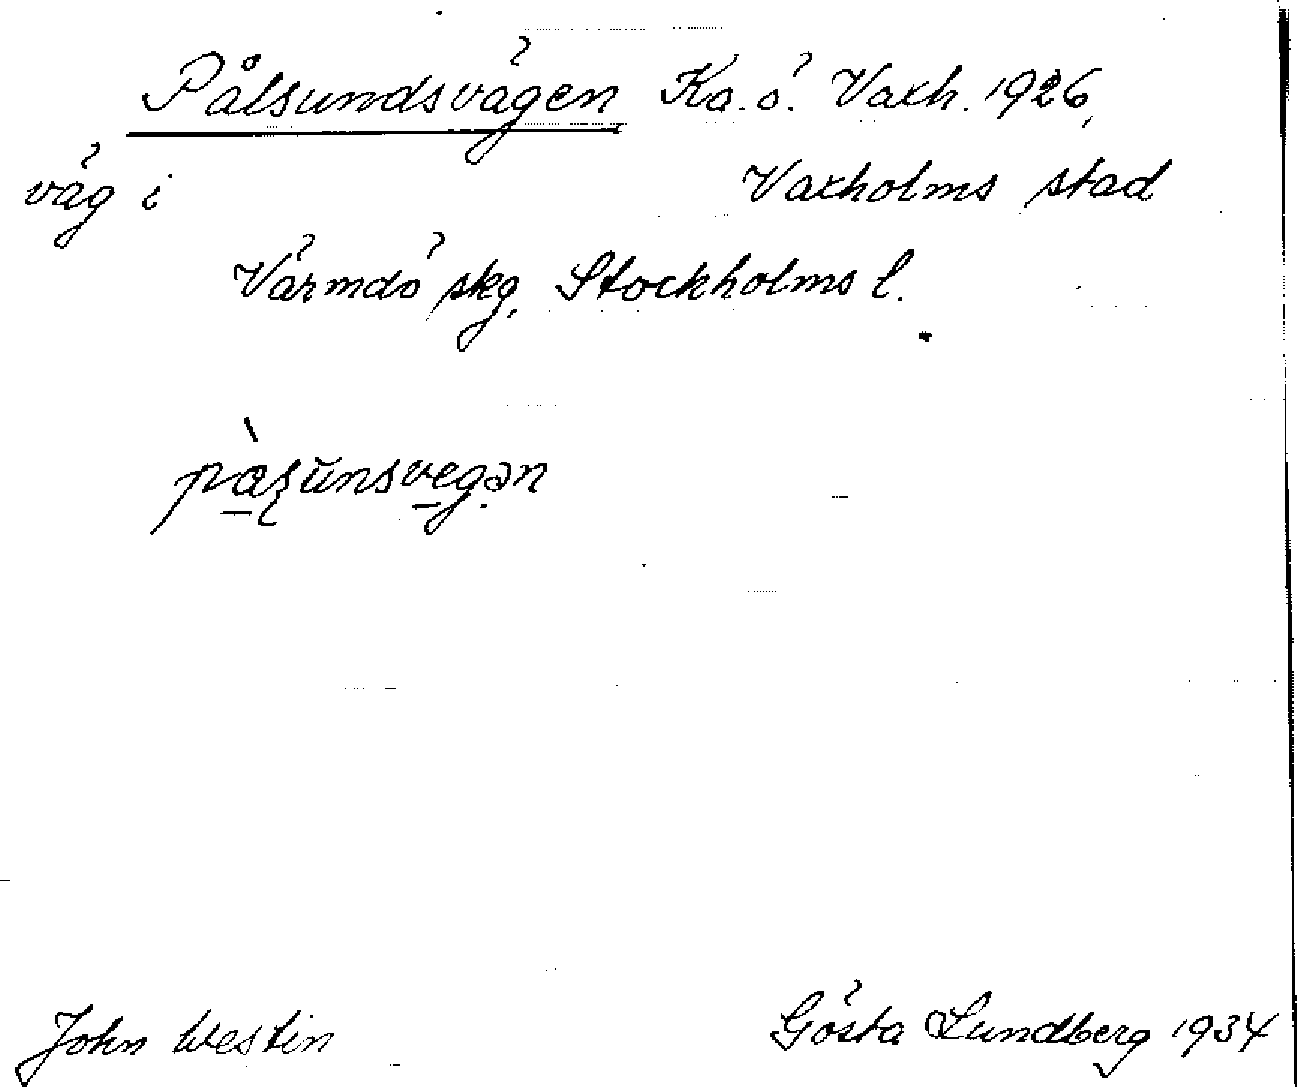 Pålsundsvägen Ka. ö. Vaxh. 1926,
väg i Vaxholms stad
Värmdö skg, Stockholms l.
John Westin
Gösta Lundberg 1934